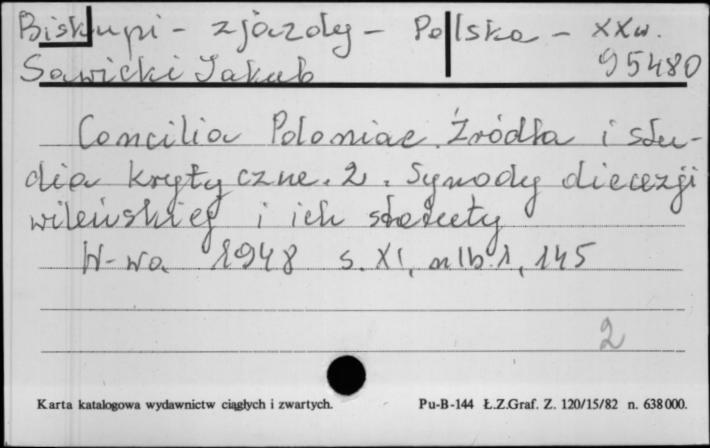 Biskupi - zjazdy - Polska - XXw.
Sawicki Jakub 95480
Concilia Poloniae. Źródła i stu-
dia krytyczne. 2. Synody diecezji
wileńskiej i ich statuty
W-wa 1948 s. XI, nlb. 1, 145
2
Karta katalogowa wydawnictw ciągłych i zwartych. Pu-B-144 Ł.Z.Graf. Z. 120/15/82 n. 638000.